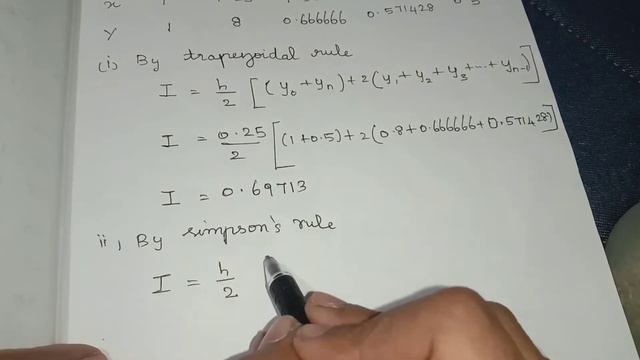 x
y 1 8 0.666666 0.571428
(i) By trapezoidal rule
I = h/2 [(y₀+yₙ)+2(y₁+y₂+y₃+---+yₙ₋₁)]
I = 0.25/2 [(1+0.5)+2(0.8+0.666666+0.571428)]
I = 0.69713
ii, By simpson's rule
I = h/2